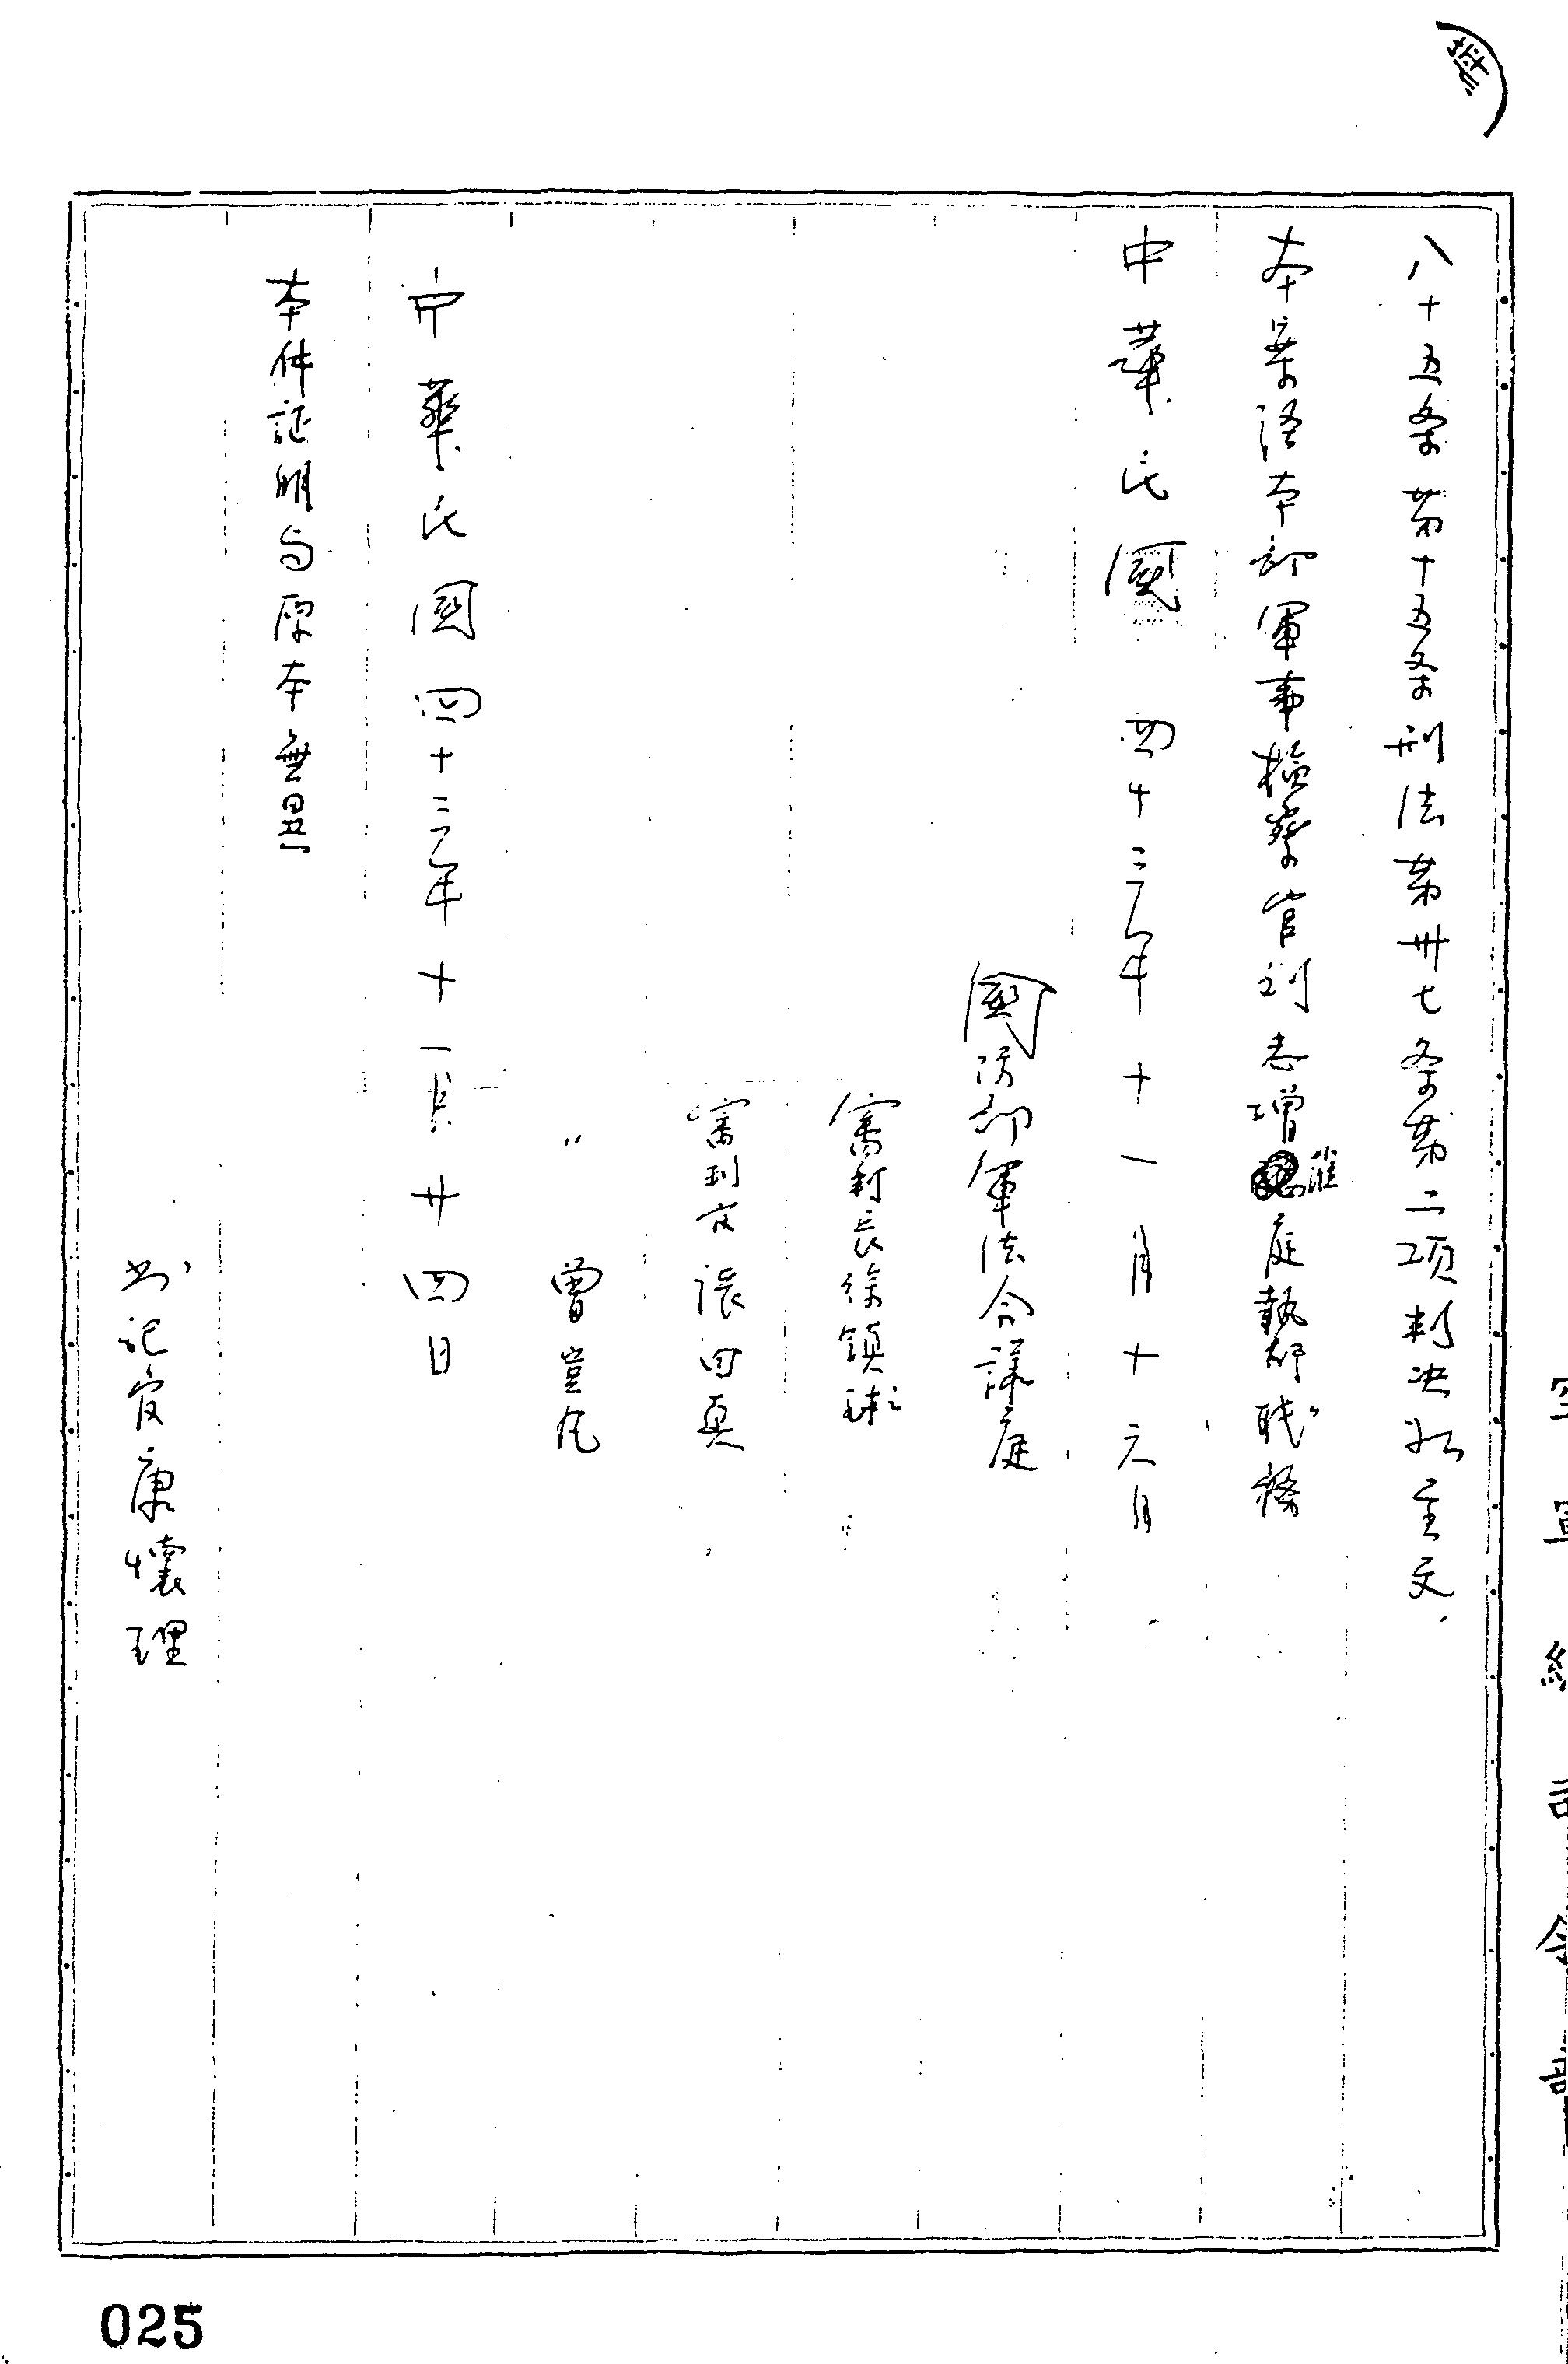 八十五条第十五条刑法第卅七条第二项判决如主文、
本案经本部軍事檢察官刘志增蒞庭執行职務
中華民國四十三年十一月十六日
國防部軍法合議庭
審判长徐鎮球
審判官張四真
〃曾岂凡
中華民國四十三年十一月廿四日
本件証明与原本無異
书记官康懷理
025